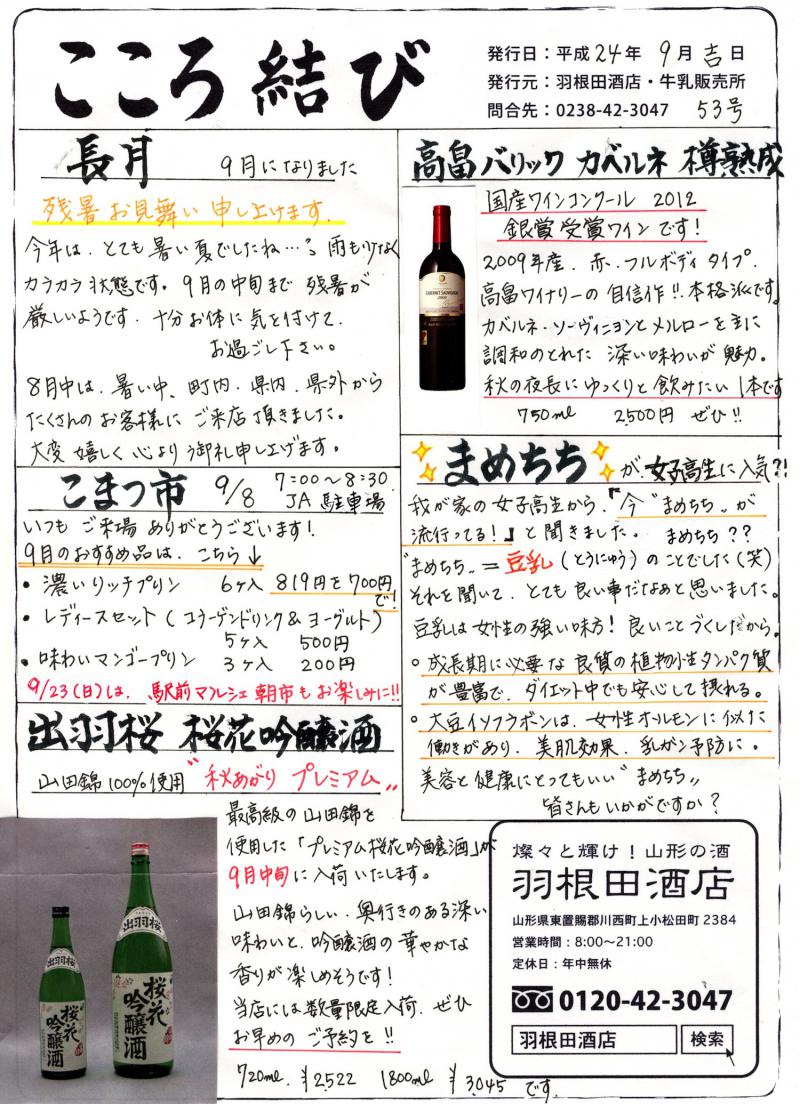 こころ結び
発行日：平成24年 9月吉日
発行元：羽根田酒店・牛乳販売所
問合先：0238-42-3047 53号
長月 9月になりました
残暑お見舞い申し上げます.
今年は、とても暑い夏でしたね…。雨も降らなく
カラカラ状態です。9月の中旬まで残暑が
厳しいようです. 十分お体に気を付けて.
お過ごし下さい。
8月中は、暑い中、町内、県内、県外から
たくさんのお客様にご来店頂きました。
大変嬉しく心より御礼申し上げます。
こまつ市 9/8 7:00〜8:30.
JA駐車場
いつもご来場ありがとうございます!
9月のおすすめ品は、こちら↓
・濃いリッチプリン 6ヶ入 819円を700円で!
・レディースセット(コラーゲンドリンク&ヨーグルト)
5ヶ入 500円
・味わいマンゴープリン 3ヶ入 200円
9/23(日)は、駅前マルシェ朝市もお楽しみに!!
出羽桜 桜花吟醸酒
山田錦100%使用 〝秋あがり プレミアム〟
最高級の山田錦を
使用した「プレミアム桜花吟醸酒」が
9月中旬に入荷いたします。
山田錦らしい、奥行きのある深い
味わいと、吟醸酒の華やかな
香りが楽しめそうです!
当店には数量限定入荷. ぜひ
お早めのご予約を!!
720ml. ¥2,522 1800ml ¥3,045 です.
出羽桜
桜花
吟醸酒
出羽桜
桜花
吟醸酒
高畠バリック カベルネ 樽熟成
国産ワインコンクール 2012
銀賞受賞ワインです!
2009年産. 赤. フルボディタイプ.
高畠ワイナリーの自信作!! 本格派です。
カベルネ・ソーヴィニヨンとメルローを主に
調和のとれた 深い味わいが魅力。
秋の夜長にゆっくりと飲みたい1本です
750ml 2,500円 ぜひ!!
CABERNET SAUVIGNON
まめちち が、女子高生に人気?!
我が家の女子高生から、『今〝まめちち〟が
流行ってる!』と聞きました。 まめちち??
〝まめちち〟=豆乳(とうにゅう)のことでした(笑)
それを聞いて、とても良い事だなぁと思いました。
豆乳は女性の強い味方! 良いことづくしだから。
○成長期に必要な良質の植物性タンパク質
が豊富で、ダイエット中でも安心して摂れる。
○大豆イソフラボンは、女性ホルモンに似た
働きがあり、美肌効果、乳がン予防に。
美容と健康にとってもいい〝まめちち〟
皆さんもいかがですか?
燦々と輝け！山形の酒
羽根田酒店
山形県東置賜郡川西町上小松田町2384
営業時間：8:00〜21:00
定休日：年中無休
0120-42-3047
羽根田酒店 検索